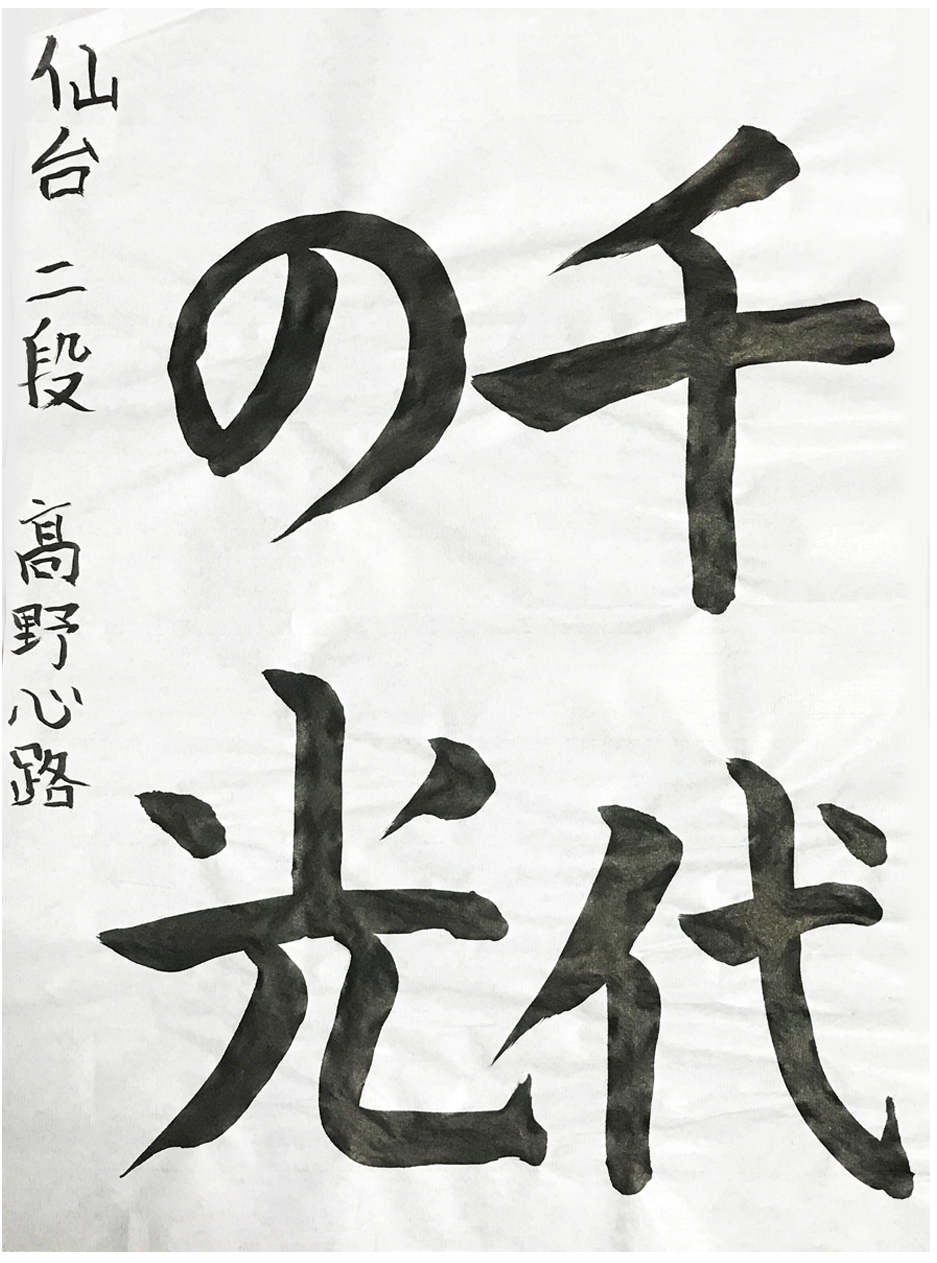 千代
の光
仙台 二段 高野心路